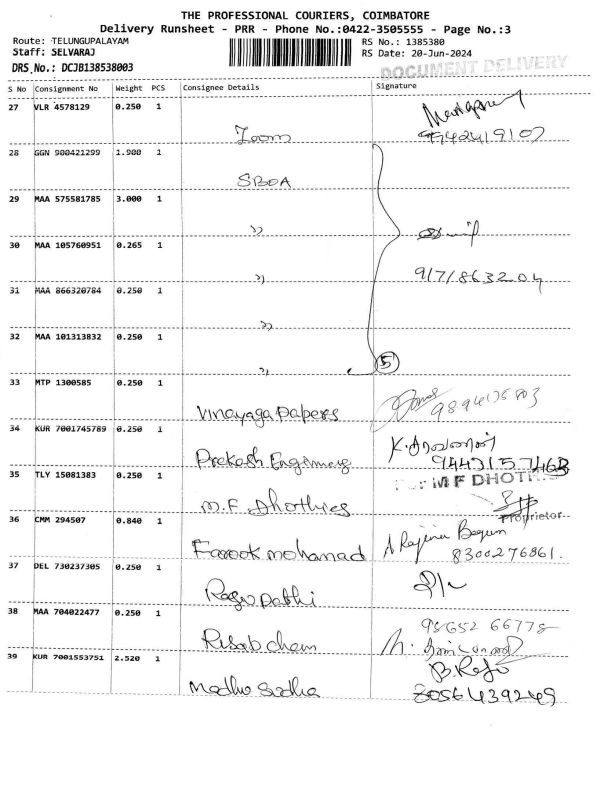 THE PROFESSIONAL COURIERS, COIMBATORE
Delivery Runsheet - PRR - Phone No.:0422-3505555 - Page No.:3
Route: TELUNGUPALAYAM
Staff: SELVARAJ
DRS No.: DCJB138538003
RS No.: 1385380
RS Date: 20-Jun-2024
DOCUMENT DELIVERY
S No Consignment No Weight PCS Consignee Details Signature
27 VLR 4578129 0.250 1
Zoom
28 GGN 900421299 1.900 1
SBOA
29 MAA 575581785 3.000 1
"
30 MAA 105760951 0.265 1
"
31 MAA 866320784 0.250 1
"
32 MAA 101313832 0.250 1
" 5
33 MTP 1300585 0.250 1
Vinayaga Papers
34 KUR 7001745789 0.250 1
K. சரவணன்
35 TLY 15081383 0.250 1
M F DHOTI
M.F. Dhothies
Proprietor
36 CMM 294507 0.840 1
A Rajina Begum
Farook mohamad 8300276861.
37 DEL 730237305 0.250 1
Ragupathi
38 MAA 704022477 0.250 1
98652 66778
39 KUR 7001553751 2.520 1
B. Raju
Madhu Sudha 8056439249